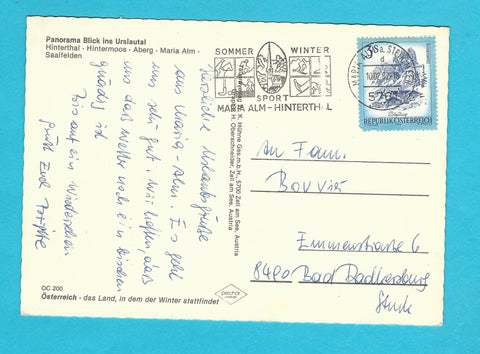 Panorama Blick ins Urslautal
Hinterthal - Hintermoos - Aberg - Maria Alm -
Saalfelden
SOMMER WINTER
SPORT
MARIA ALM-HINTERTHAL
MARIA ALM a. STEIN. MEER
5761
REPUBLIK ÖSTERREICH
Herzliche Urlaubsgrüße
aus Maria-Alm. Es geht
uns sehr gut. Wir hoffen, daß
uns das Wetter noch ein bisschen
gnädig ist
Bis auf ein Wiedersehen
grüßt Euch
K. Hühne Ges.m.b.H., 5700 Zell am See, Austria
H. Oberschneider, Zell am See, Austria
An Fam.
Bouvier
Emmenstraße 6
8490 Bad Radkersburg
Stmk
OC 200
Österreich - das Land, in dem der Winter stattfindet